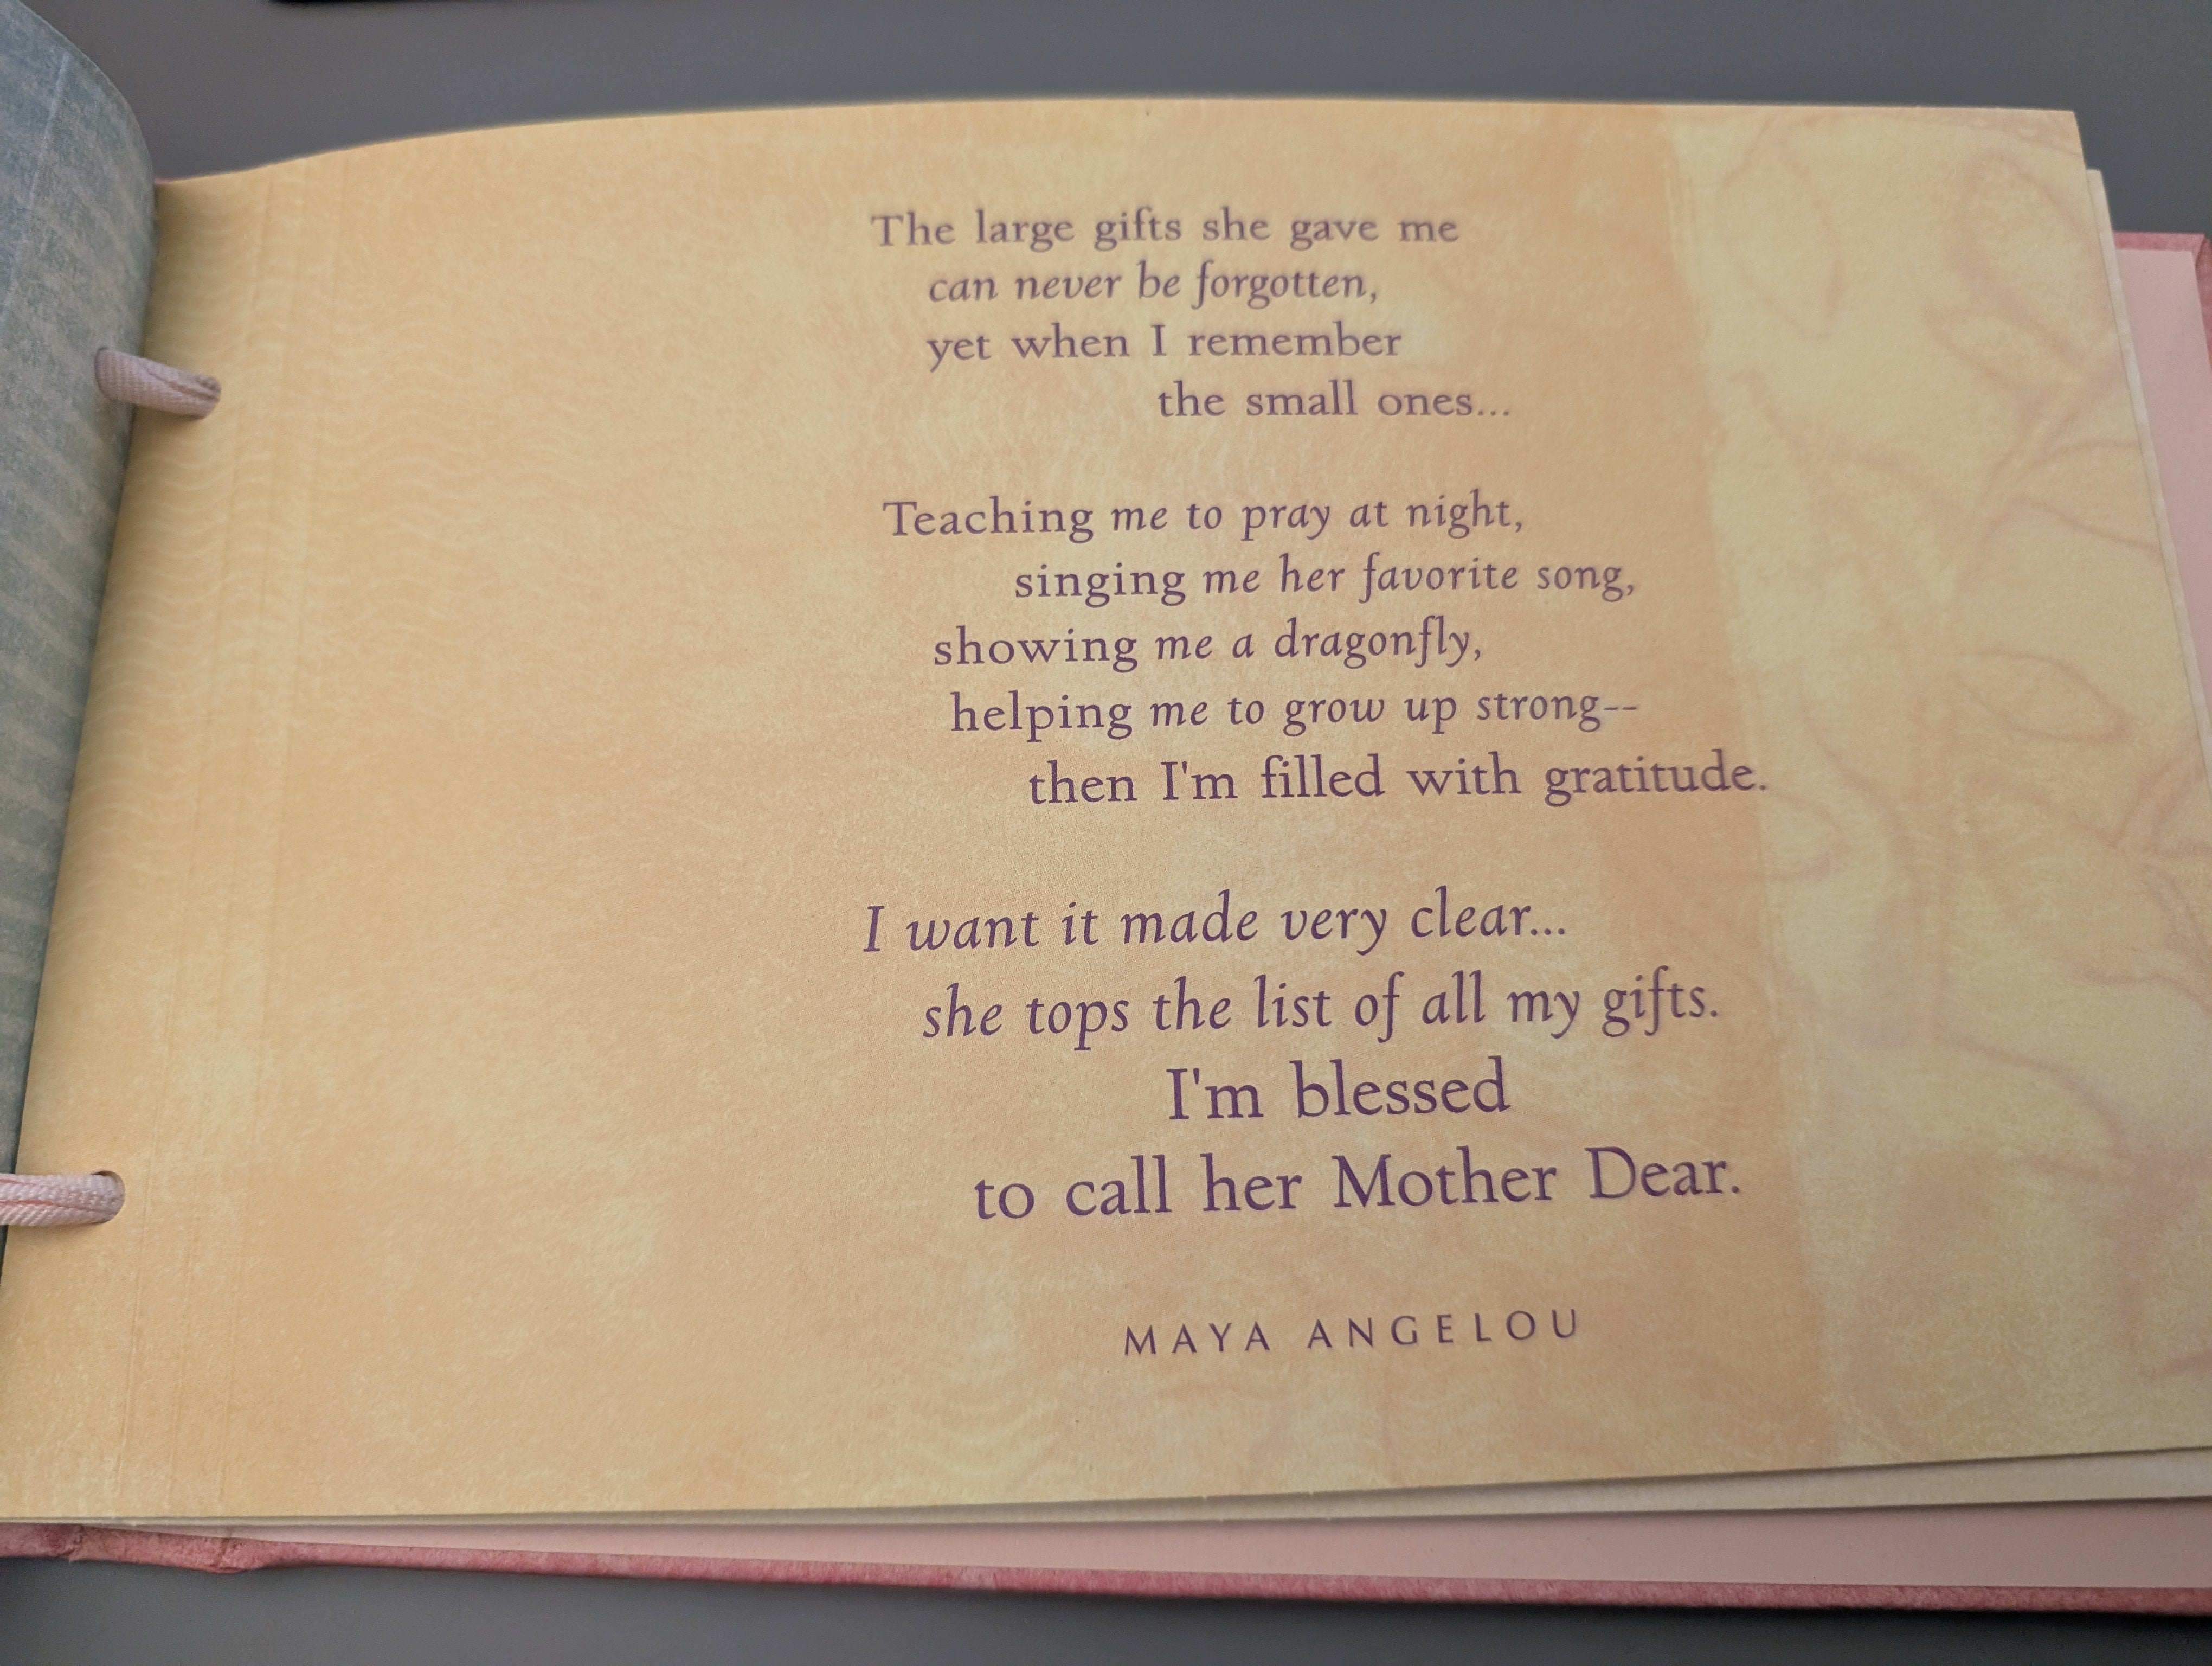 The large gifts she gave me
can never be forgotten,
yet when I remember
the small ones...
Teaching me to pray at night,
singing me her favorite song,
showing me a dragonfly,
helping me to grow up strong--
then I'm filled with gratitude.
I want it made very clear...
she tops the list of all my gifts.
I'm blessed
to call her Mother Dear.
MAYA ANGELOU